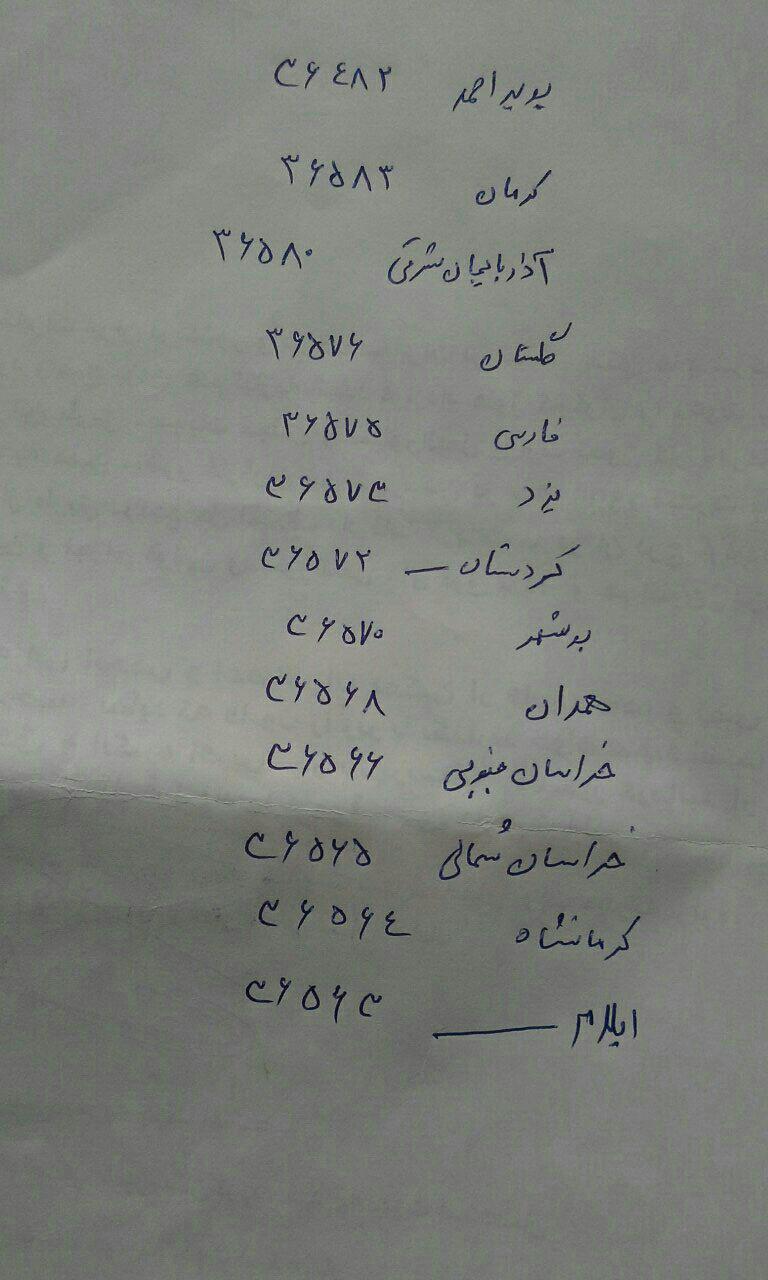 بویراحمد ۳۶۴۸۲
کرمان ۳۶۵۸۳
آذربایجان شرقی ۳۶۵۸۰
گلستان ۳۶۵۷۶
فارس ۳۶۵۷۵
یزد ۳۶۵۷۳
کردستان — ۳۶۵۷۲
بوشهر ۳۶۵۷۰
همدان ۳۶۵۶۸
خراسان جنوبی ۳۶۵۶۶
خراسان شمالی ۳۶۵۶۵
کرمانشاه ۳۶۵۶۴
ایلام — ۳۶۵۶۳